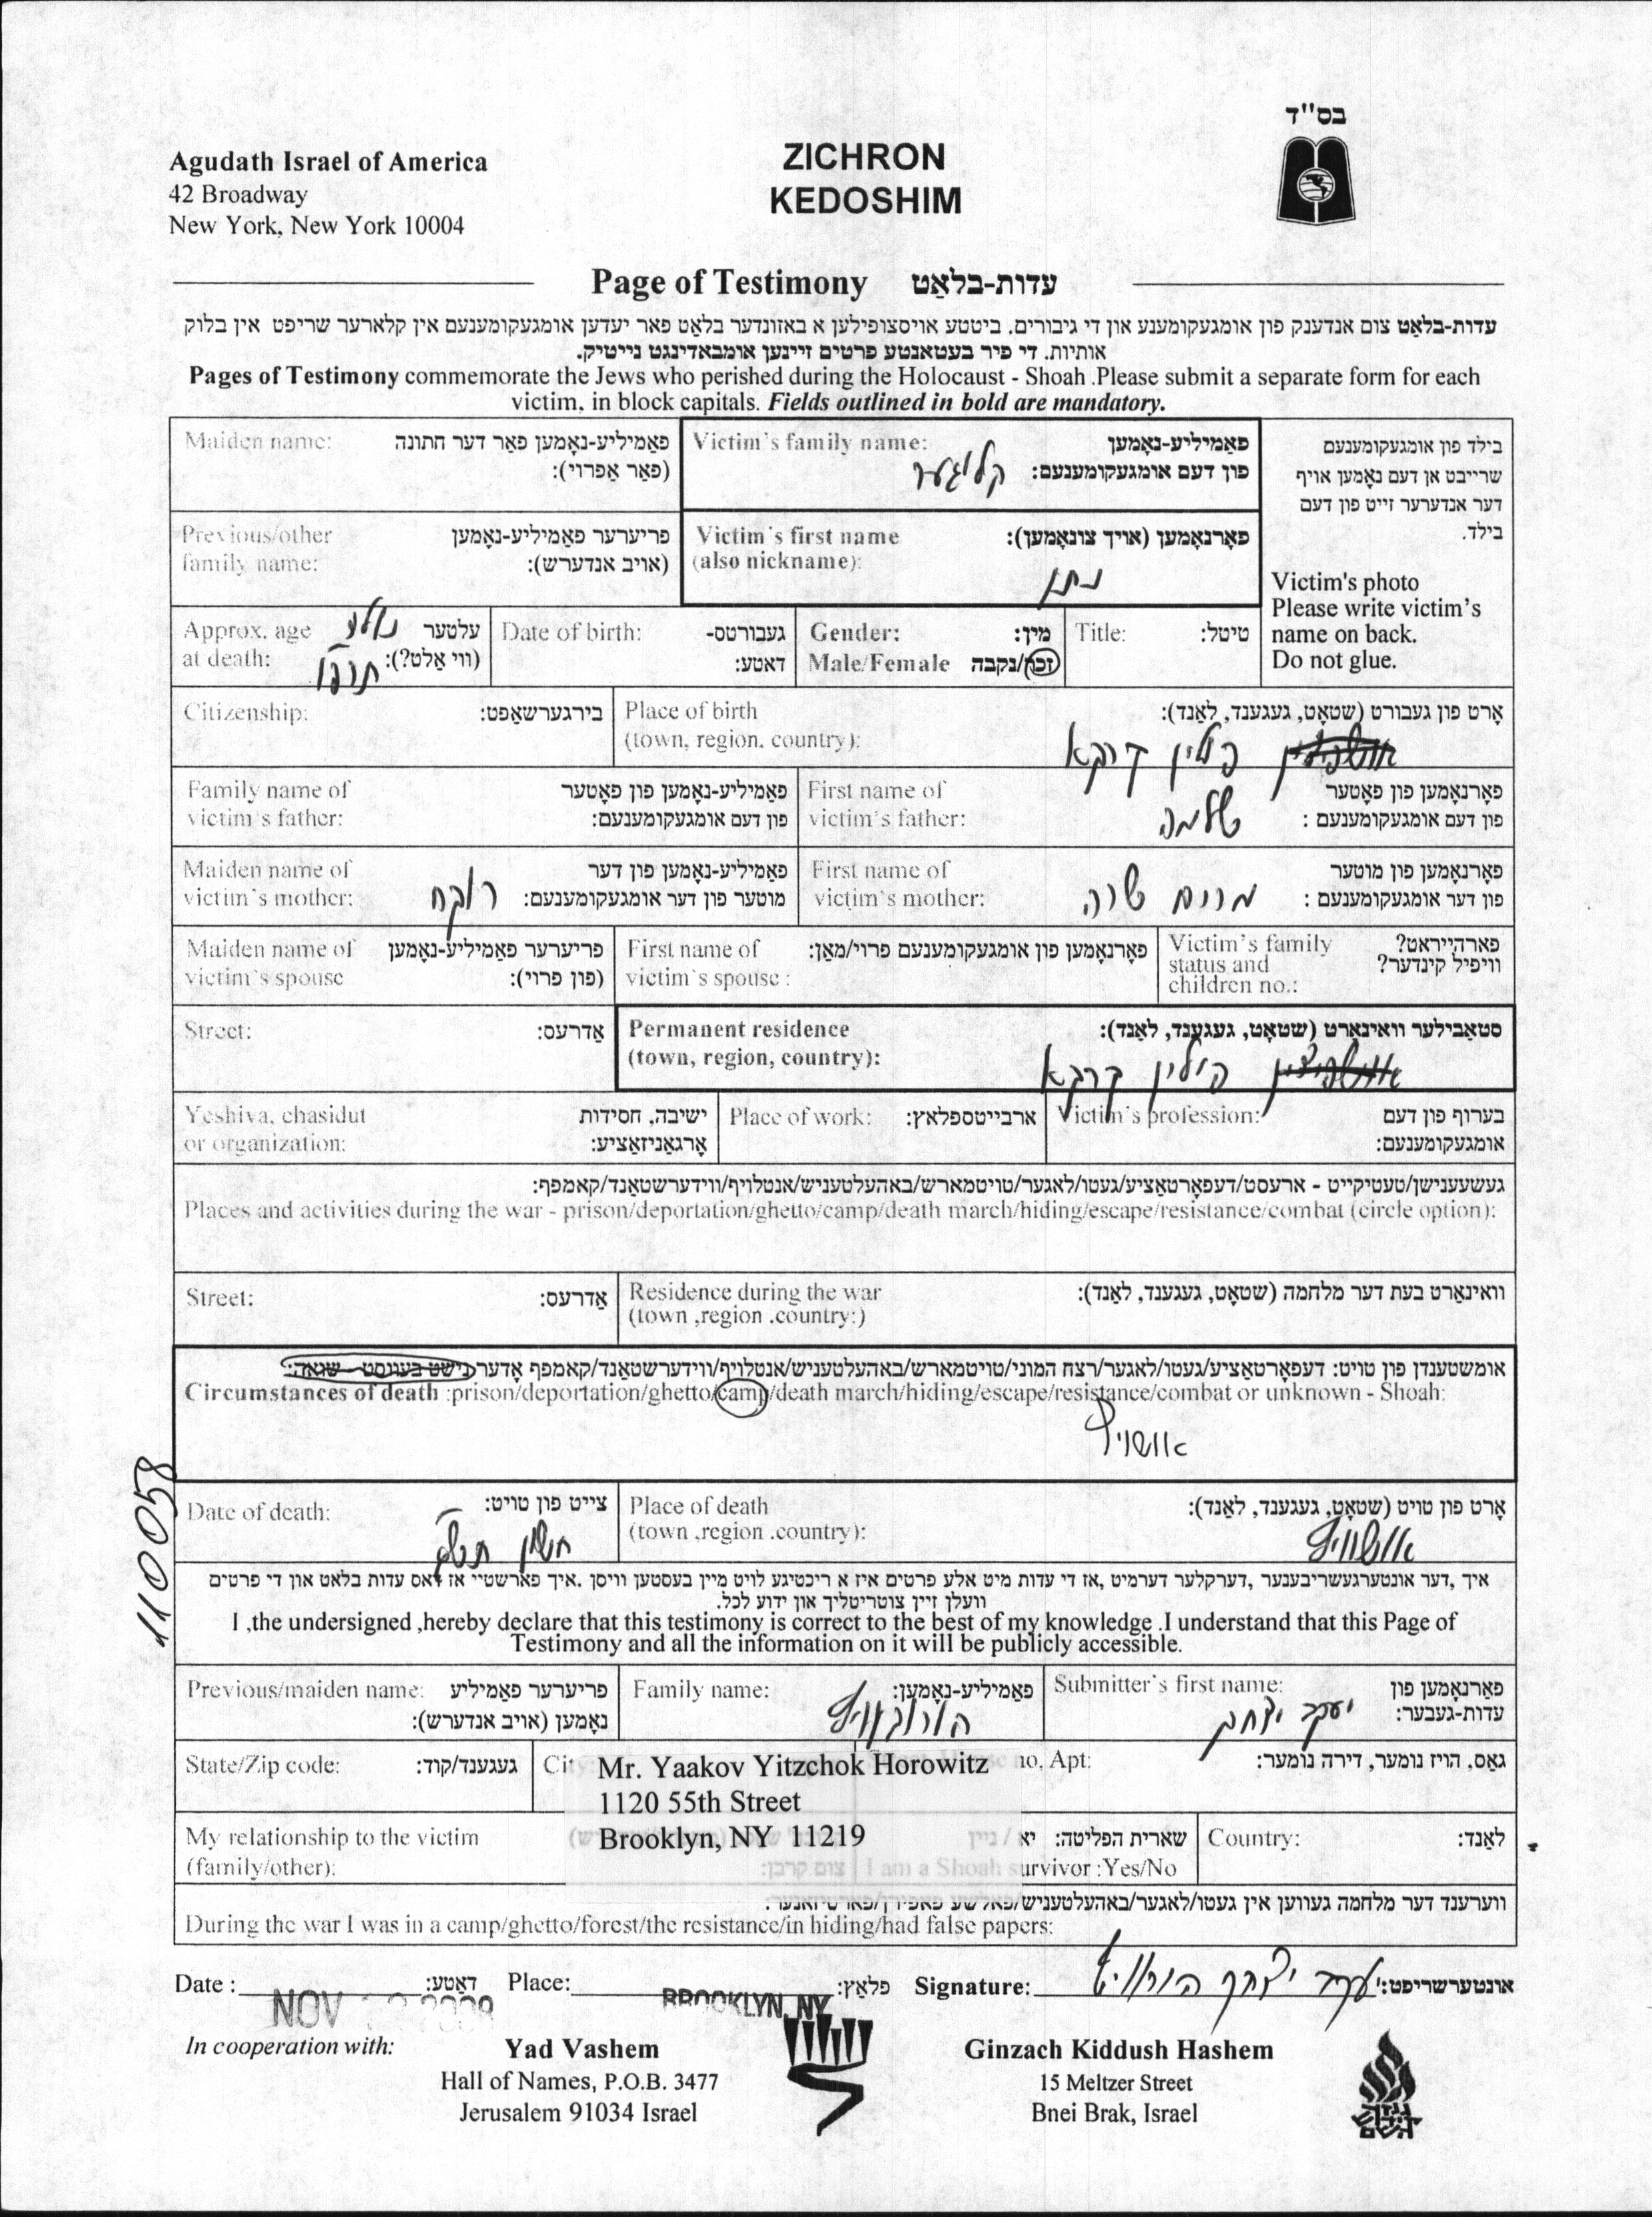 בס"ד
Agudath Israel of America
42 Broadway
New York, New York 10004
ZICHRON
KEDOSHIM
Page of Testimony עדות-בלאַט
עדות-בלאַט צום אנדענק פון אומגעקומענע און די גיבורים. ביטטע אויסצופילען א באזונדער בלאַט פאר יעדען אומגעקומענעם אין קלארער שריפט אין בלוק
אותיות. די פיר בעטאנטע פרטים זיינען אומבאדינגט נייטיק.
Pages of Testimony commemorate the Jews who perished during the Holocaust - Shoah .Please submit a separate form for each
victim, in block capitals. Fields outlined in bold are mandatory.
Maiden name: פאַמיליע-נאָמען פאַר דער חתונה
(פאַר אַפרוי):
Victim's family name: פאַמיליע-נאָמען
פון דעם אומגעקומענעם: קלוגער
בילד פון אומגעקומענעם
שרייבט אן דעם נאָמען אויף
דער אנדערער זייט פון דעם
בילד.
Victim's photo
Please write victim's
name on back.
Do not glue.
Previous/other פריערער פאַמיליע-נאָמען
family name: (אויב אנדערש):
Victim's first name פאָרנאָמען (אויך צונאָמען):
(also nickname):
נתן
Approx. age עלטער נולד
at death: (ווי אַלט?):
Date of birth: געבורטס-
דאטע:
Gender: מין:
Male/Female זכר/נקבה
Title: טיטל:
Citizenship: בירגערשאַפט:
Place of birth אָרט פון געבורט (שטאָט, געגענד, לאַנד):
(town, region, country):
פולין קרקא
Family name of פאַמיליע-נאָמען פון פאָטער
victim's father: פון דעם אומגעקומענעם:
First name of פאָרנאָמען פון פאָטער
victim's father: פון דעם אומגעקומענעם :
שלמה
Maiden name of פאַמיליע-נאָמען פון דער
victim's mother: מוטער פון דער אומגעקומענעם: רוקח
First name of פאָרנאָמען פון מוטער
victim's mother: פון דער אומגעקומענעם :
מרים שרה
Maiden name of פריערער פאַמיליע-נאָמען
victim's spouse (פון פרוי):
First name of פאָרנאָמען פון אומגעקומענעם פרוי/מאַן:
victim's spouse :
Victim's family פארהייראט?
status and וויפיל קינדער?
children no.:
Street: אַדרעס:
Permanent residence סטאַבילער וואינאַרט (שטאָט, געגענד, לאַנד):
(town, region, country):
פולין קרקא
Yeshiva, chasidut ישיבה, חסידות
or organization: אָרגאַניזאַציע:
Place of work: ארבייטספלאץ:
Victim's profession: בערוף פון דעם
אומגעקומענעם:
געשעענישן/טעטיקייט - ארעסט/דעפאָרטאַציע/געטו/לאגער/טויטמארש/באהעלטעניש/אנטלויף/ווידערשטאַנד/קאמפף:
Places and activities during the war - prison/deportation/ghetto/camp/death march/hiding/escape/resistance/combat (circle option):
Street: אַדרעס:
Residence during the war וואינאַרט בעת דער מלחמה (שטאָט, געגענד, לאַנד):
(town ,region .country:)
אומשטענדן פון טויט: דעפאָרטאַציע/געטו/לאגער/רצח המוני/טויטמארש/באהעלטעניש/אנטלויף/ווידערשטאַנד/קאמפף אָדער נישט בעוסט - שואה:
Circumstances of death :prison/deportation/ghetto/camp/death march/hiding/escape/resistance/combat or unknown - Shoah:
אושויץ
110058
Date of death: צייט פון טויט:
Place of death אָרט פון טויט (שטאָט, געגענד, לאַנד):
(town ,region .country):
חשון
אושוויץ
איך ,דער אונטערגעשריבענער ,דערקלער דערמיט ,אז די עדות מיט אלע פרטים איז א ריכטיגע לויט מיין בעסטען וויסן .איך פארשטיי אז דאס עדות בלאט און די פרטים
וועלן זיין צוטריטליך און ידוע לכל.
I ,the undersigned ,hereby declare that this testimony is correct to the best of my knowledge .I understand that this Page of
Testimony and all the information on it will be publicly accessible.
Previous/maiden name: פריערער פאַמיליע
נאָמען (אויב אנדערש):
Family name: פאַמיליע-נאָמען:
הורוביץ
Submitter's first name: פאַרנאָמען פון
עדות-געבער:
יעקב יצחק
State/Zip code: געגענד/קוד:
no. Apt: גאַס, הויז נומער, דירה נומער:
Mr. Yaakov Yitzchok Horowitz
1120 55th Street
Brooklyn, NY 11219
My relationship to the victim
(family/other):
שארית הפליטה: יא / ניין
I am a Shoah survivor :Yes/No
Country: לאַנד:
ווערענד דער מלחמה געווען אין געטו/לאגער/באהעלטעניש/פאלשע פאפירן/פארטיזאנער:
During the war I was in a camp/ghetto/forest/the resistance/in hiding/had false papers:
Date : דאַטע: Place: BROOKLYN, NY פלאַץ: Signature: יעקב יצחק הורוויץ אונטערשריפט:
NOV 2009
In cooperation with:
Yad Vashem
Hall of Names, P.O.B. 3477
Jerusalem 91034 Israel
Ginzach Kiddush Hashem
15 Meltzer Street
Bnei Brak, Israel